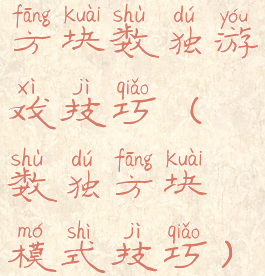 fāng kuài shù dú yóu
方块数独游
xì jì qiǎo
戏技巧（
shù dú fāng kuài
数独方块
mó shì jì qiǎo
模式技巧）